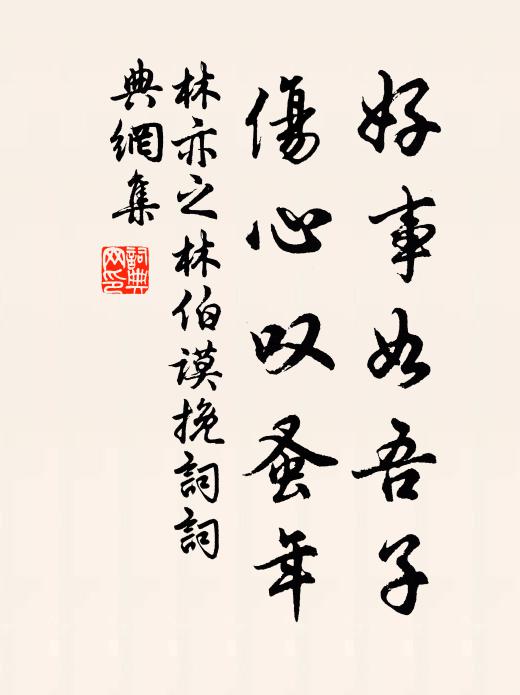 好事如吾子
傷心叹蚤年
林亦之林伯謨挽詞詞
典網集
詞典網印